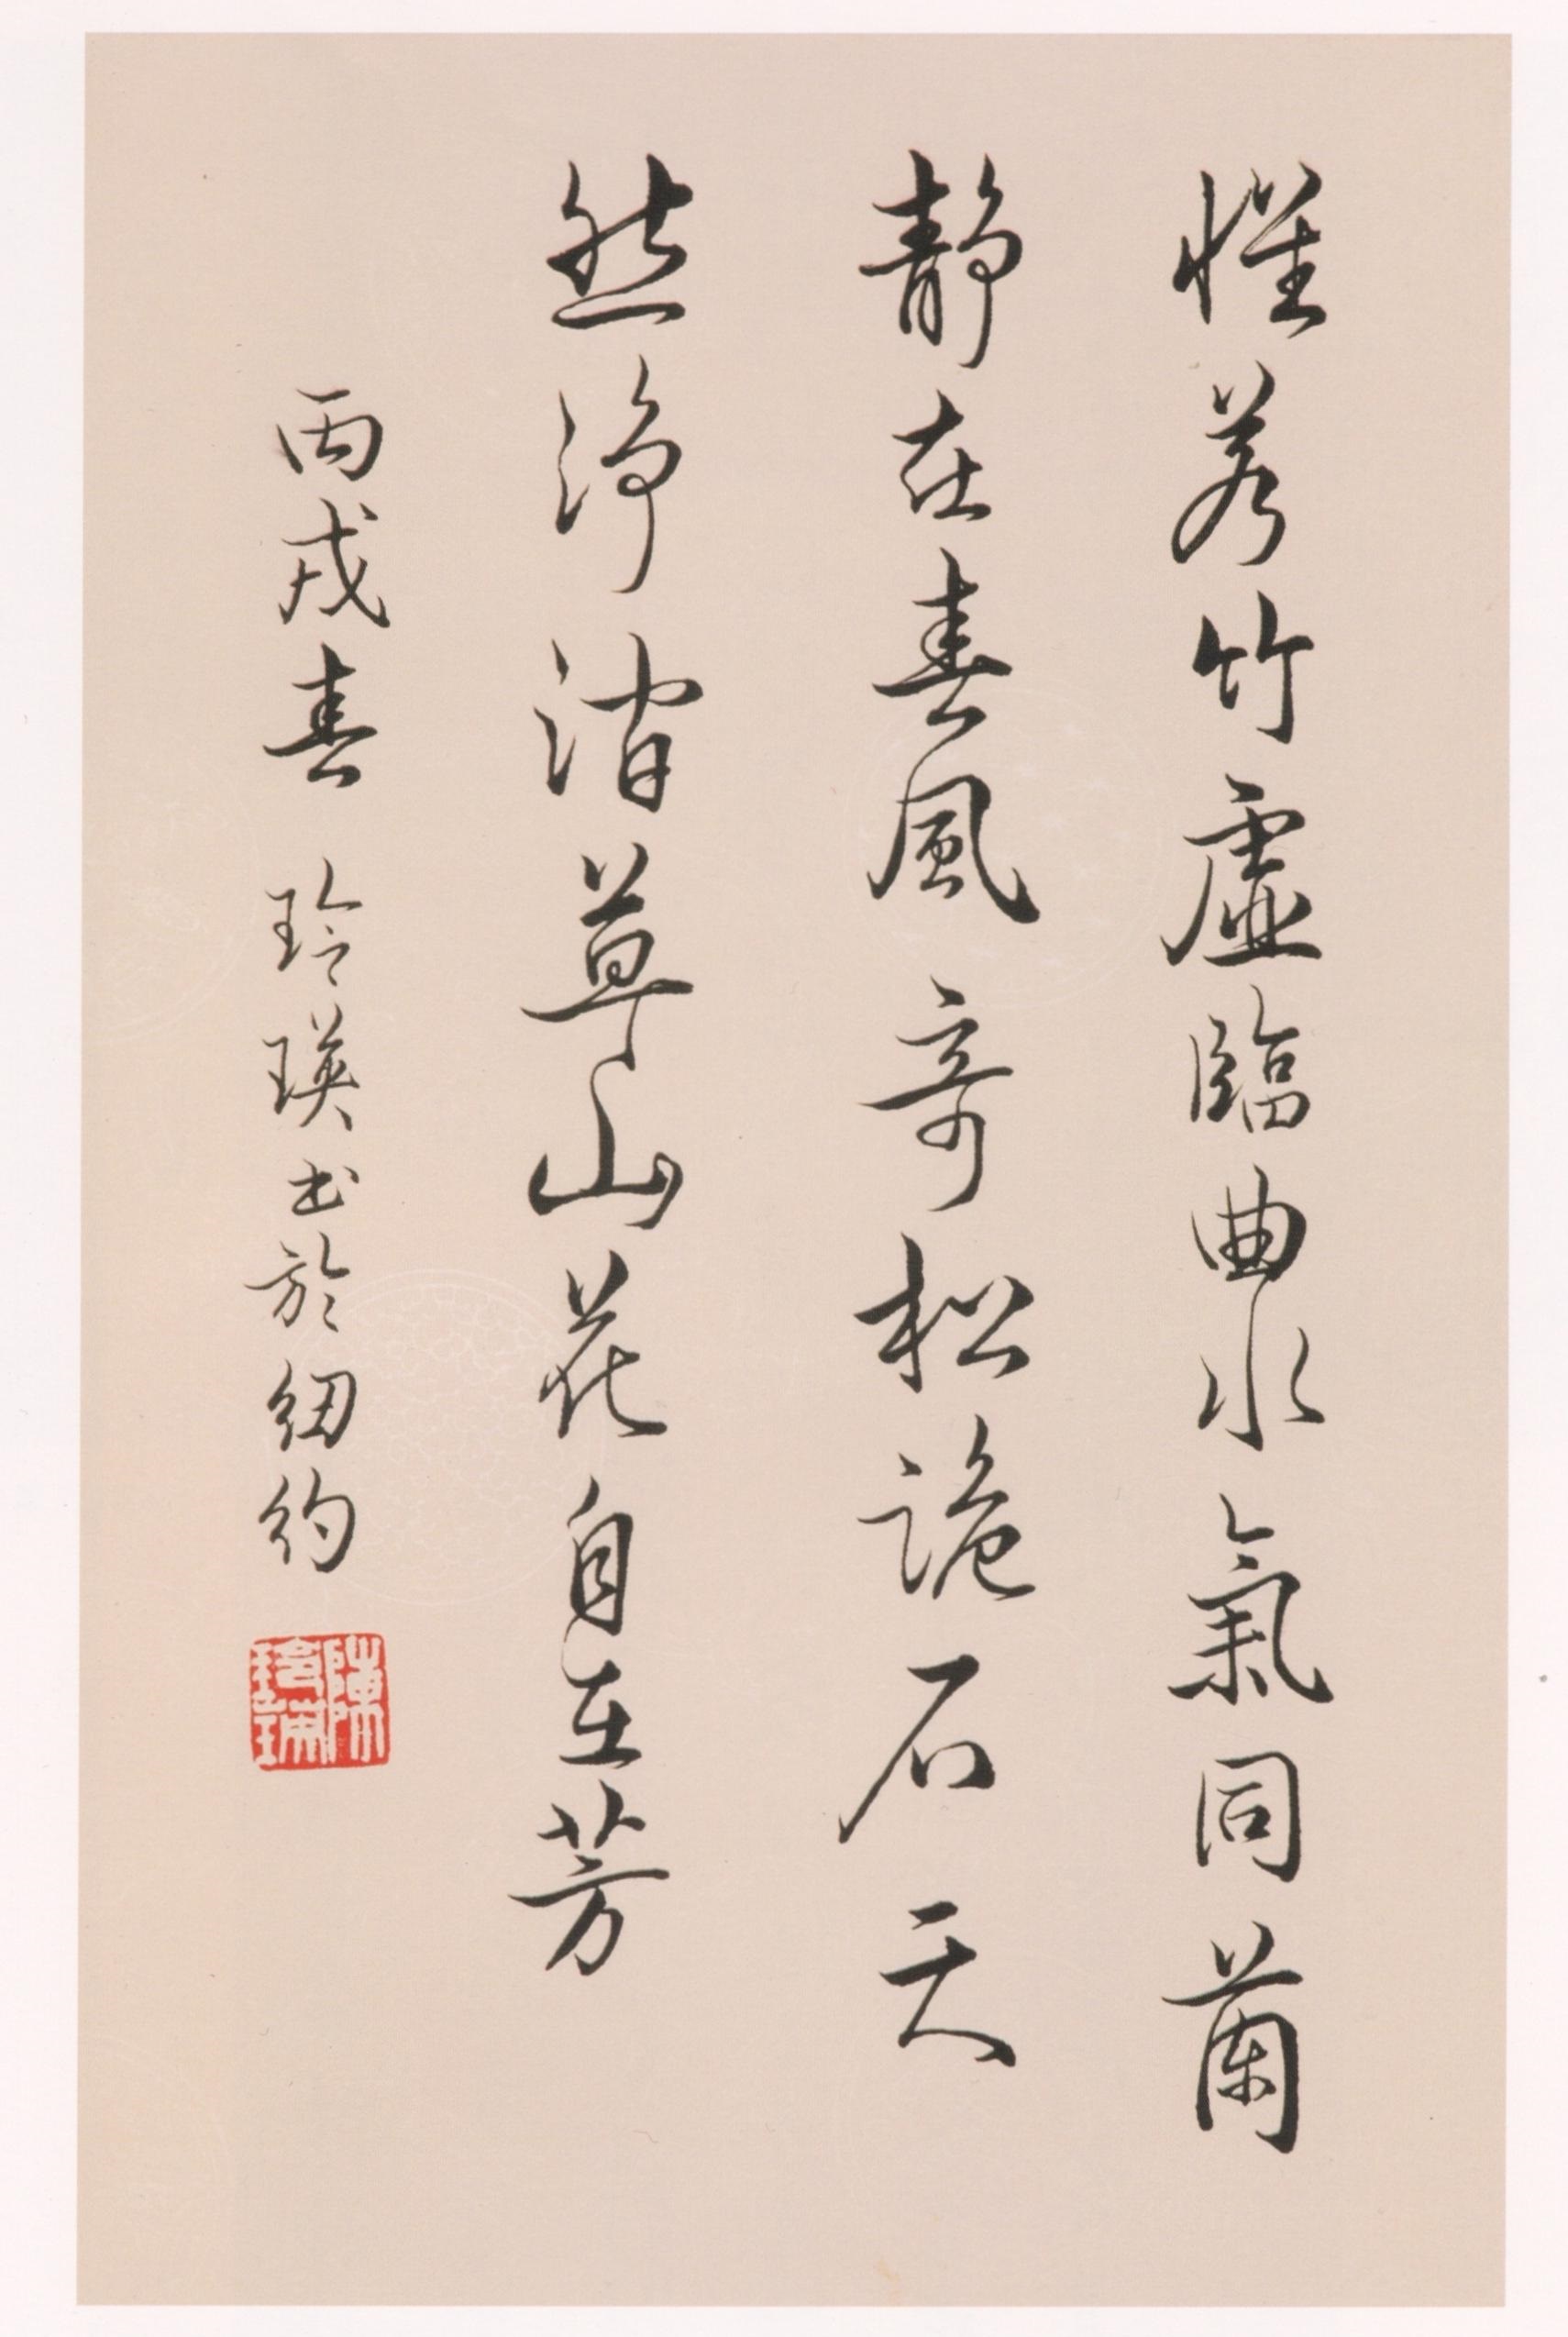 懷若竹虛臨曲水氣同蘭
靜在春風奇松詭石天
然淨澗草山花自在芳
丙戌春 玲瑛書於紐約
陳玲